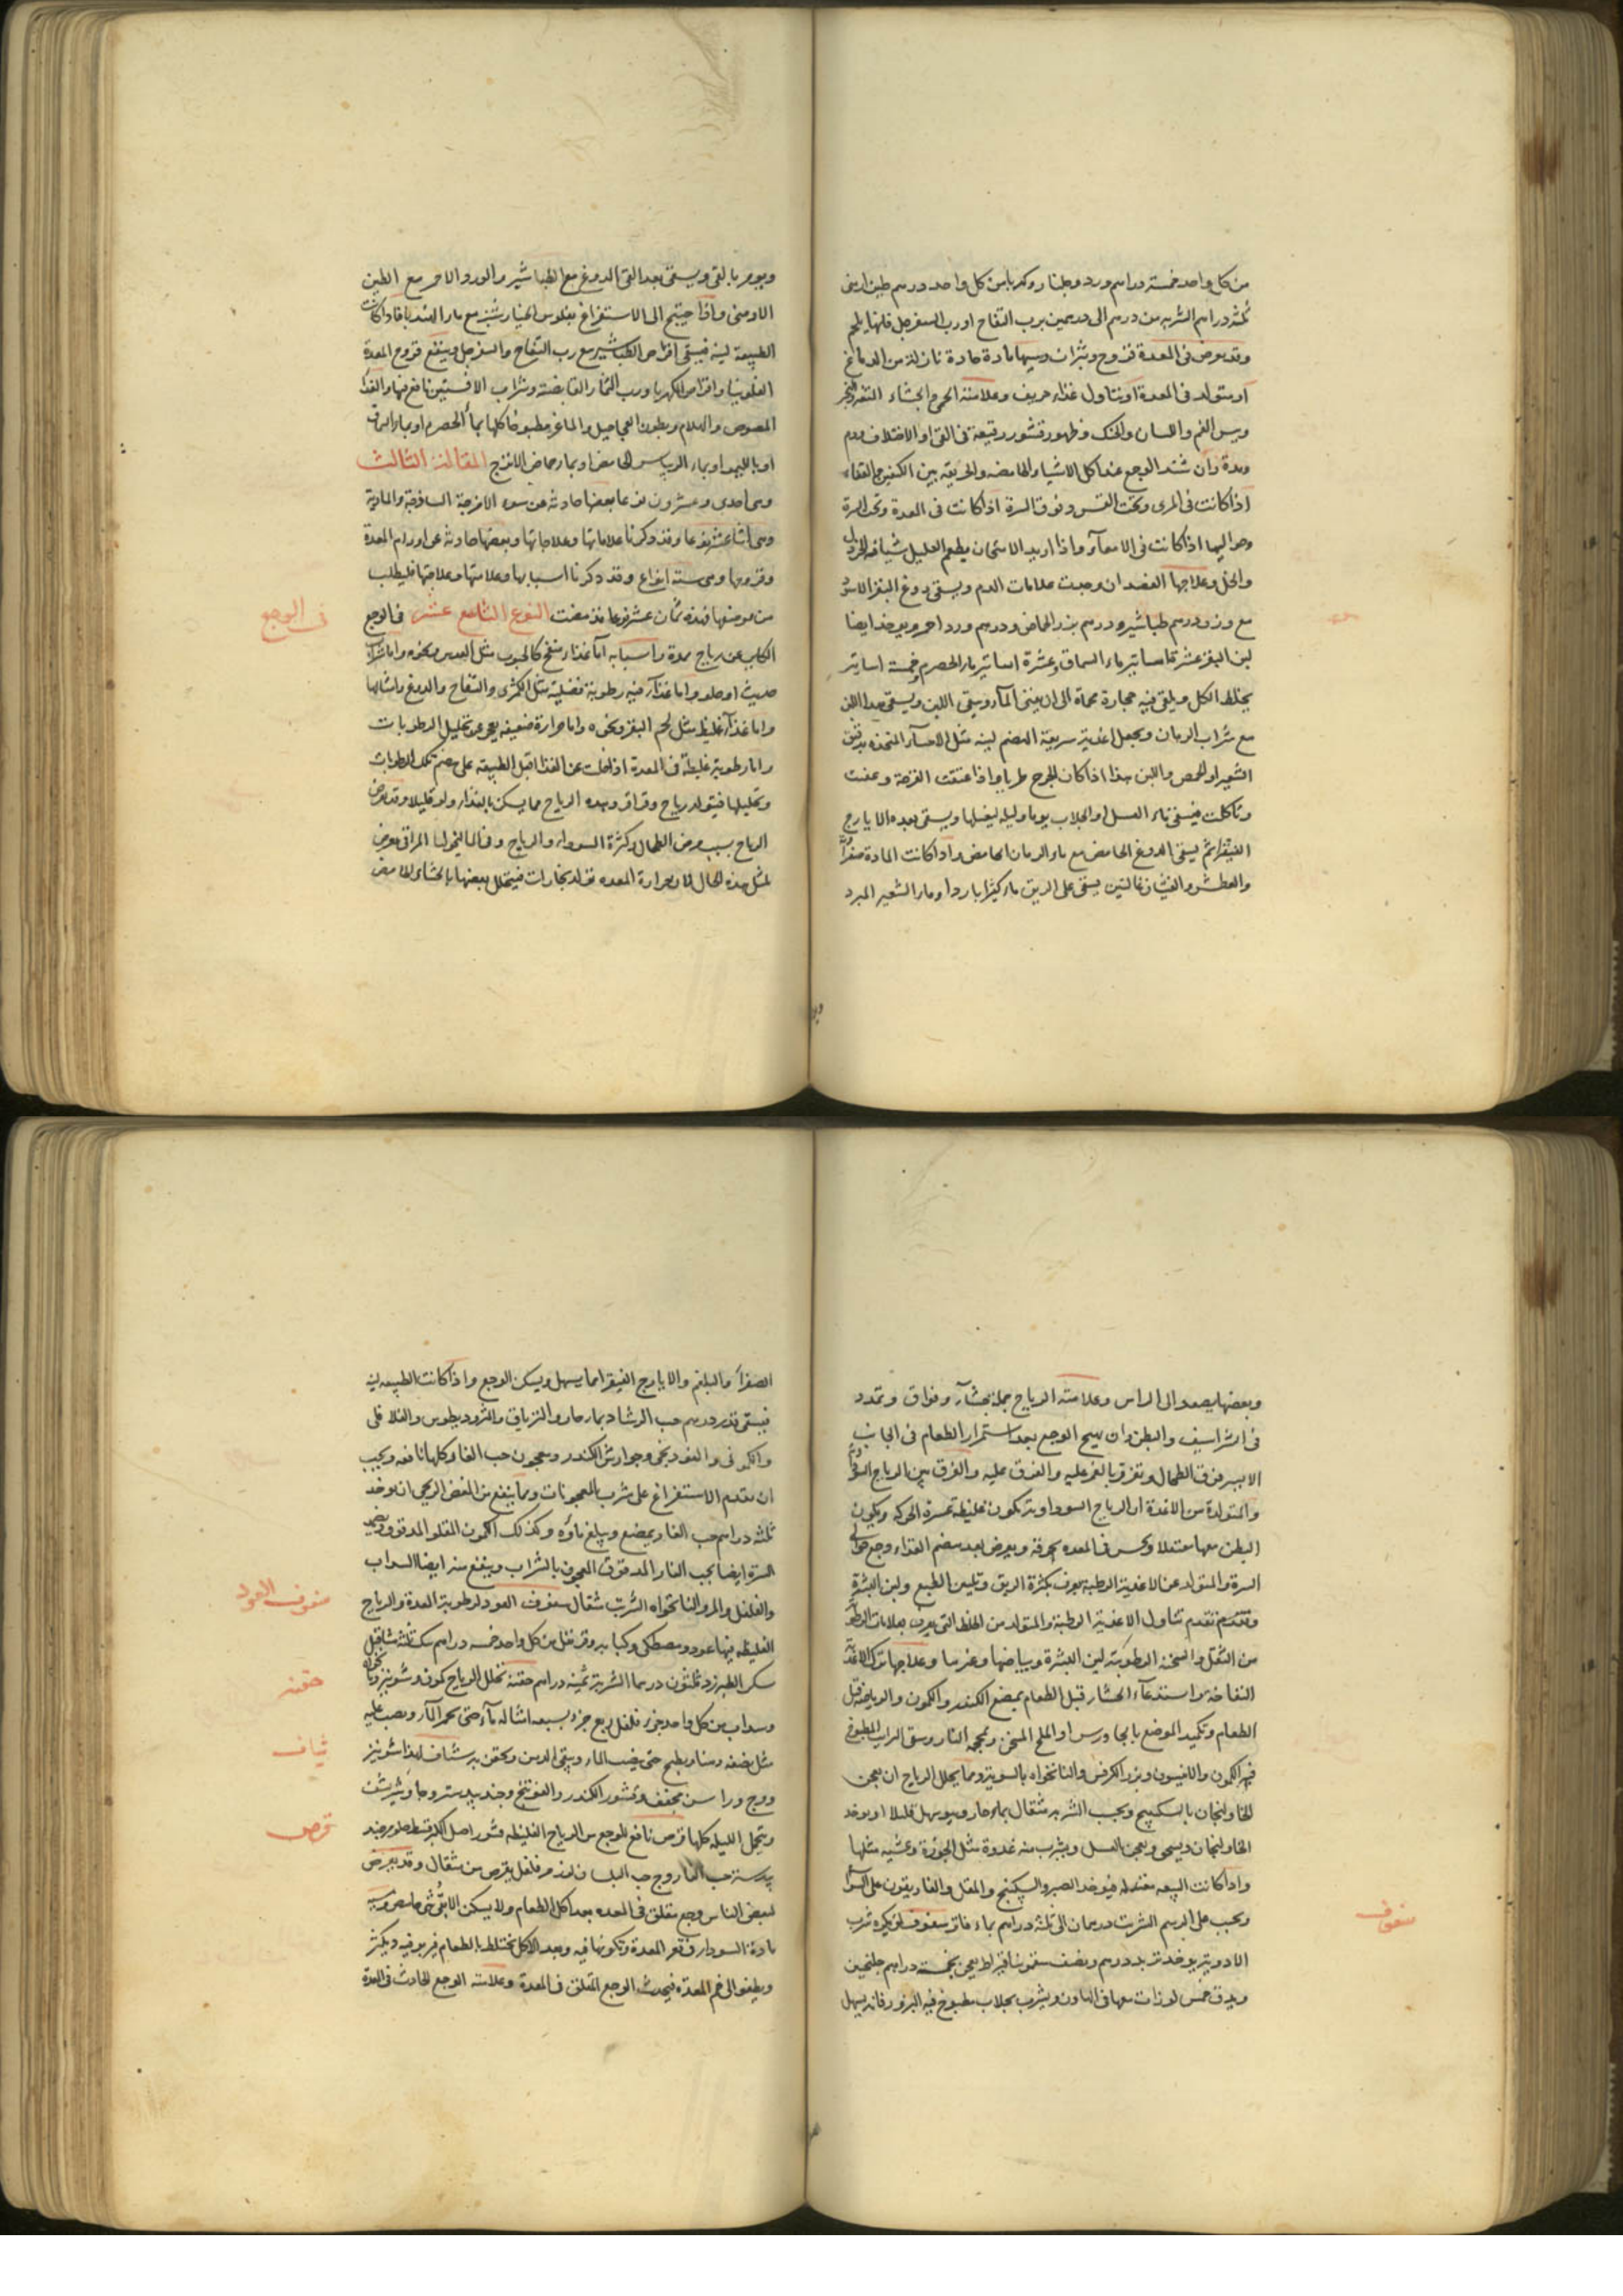 من كل واحد خمسة دراهم ورد وجلنار وكهربا من كل واحد درهم طين ارمنى
ثلثة دراهم الشربة من درهم الى درهمين برب التفاح او رب السفرجل فانها
وقد يعرض فى المعدة قروح وبثرات وسببها مادة حادة نازلة من الدماغ
او يتولد فى المعدة او تناول غذاء حريف وعلامته الجشاء
ويبس الفم واللسان والحنك وظهور قشور رقيقة فى القئ او الاختلاف ودم
ومدة وان يشتد الوجع عند اكل الاشياء الحامضة والحريفة بين الكتفين
اذا كانت فى المرى وتحت القس وفوق السرة اذا كانت فى المعدة وتحت السرة
وحواليها اذا كانت فى الامعاء واذا اريد الامتحان يطعم العليل شيئا فيه الخردل
والخل وعلاجها الفصد ان وجبت علامات الدم ويسقى دوغ البقر
مع وزن درهم طباشير ودرهم بزر الحماض ودرهم ورد احمر ويؤخذ ايضا
لبن البقر عشرة اساتير ماء السماق وعشرة اساتير ماء الحصرم وخمسة اساتير
يخلط الكل ويلقى فيه حجارة محماة الى ان يفنى الماء ويبقى اللبن ويسقى هذا اللبن
مع شراب الرمان ويجعل اغذية سريعة الهضم لينة مثل الاحساء المتخذة
الشعير او الحمص واللبن هذا اذا كان الجرح طريا واذا عتقت القرحة وعفنت
وتاكلت فيسقى ماء العسل او الجلاب يوما وليلة ليغسلها ويسقى بعده الايارج
الفيقرا ثم يسقى الدوغ الحامض مع ماء الرمان الحامض واذا كانت المادة صفراوية
والعطش والغثيان غالبين يسقى على الريق ماء كثيرا باردا وماء الشعير المبرد
ويؤمر بالقئ ويسقى بعد القئ الدوغ مع الطباشير والورد الاحمر مع الطين
الارمنى واذا احتيج الى الاستفراغ بفلوس الخيار شنبر مع ماء الهندبا فاذا كانت
الطبيعة لينة فيسقى اقراص الطباشير مع رب التفاح والسفرجل وينفع قروح المعدة
الفلونيا واقراص الكهربا ورب الثمار القابضة وشراب الافسنتين نافع فيها والغذاء
المصوص والهلام وبطون العجاجيل والماعز مطبوخا كلها بماء الحصرم او بماء
او بالليمو او بماء الريباس الحامض او بماء حماض الاترج المقالة الثالث
وهى احدى وعشرون نوعا بعضها حادثة عن سوء الامزجة الساذجة والمادية
وهى اثنا عشر نوعا وقد ذكرنا علاماتها وعلاجاتها وبعضها حادثة عن اورام المعدة
وقروحها وهى ستة انواع وقد ذكرنا اسبابها وعلامتها وعلاجها فليطلب
من موضعها فهذه ثمان عشر نوعا قد مضت النوع التاسع عشر فى الوجع
فى الوجع
الكائن عن رياح ممدة واسبابه اما غذاء منفخ كالحبوب مثل العدس ونحوه واما شراب
حديث او حلو واما غذاء فيه رطوبة فضلية مثل الكمثرى والتفاح والدوغ وامثالها
واما غذاء غليظ مثل لحم البقر ونحوه واما حرارة ضعيفة يعجز عن تحليل الرطوبات
واما رطوبة غليظة فى المعدة اذا خلت عن الغذاء اقبل الطبيعة على هضم تلك الرطوبات
وتحليلها فيتولد رياح وقراقر وهذه الرياح مما يسكن بالغذاء ولو قليلا وقد يعرض
الرياح بسبب مرض الطحال وكثرة السوداء والرياح وفى الماليخوليا المراقى يعرض
لمثل هذه الحال لان حرارة المعده تولد بخارات فيتحلل بعضها بالجشاء الحامض
وبعضها يصعد الى الراس وعلامته الرياح جملة جشاء وفواق وتمدد
فى الشراسيف والبطن وان يهيج الوجع بعد استمراء الطعام فى الجانب
الايسر فوق الطحال وتفرق بالغمز عليه والفرق بين الرياح
والمتولدة من الاغذة ان الرياح السوداوية تكون غليظة عسرة الحركة ويكون
البطن معها معتقلا ويحس فى المعده بحرقة ويعرض بعد هضم الغذاء وجع حوالى
السرة والمتولد عن الاغذية الرطبة يعرف بكثرة الريق وتليين الطبع ولين البشرة
وتقدم تناول الاغذية الرطبة والمتولد من الخلط النى يعرف بعلامات
من الثقل والسخنة الرطوبة لين البشرة وبياضها وغيرها وعلاجها ترك الاغذية
النفاخة واستدعاء الجشاء قبل الطعام بمضغ الكندر والكمون والرياضة قبل
الطعام وتكميد الموضع بالجاورس او الملح المسخن ومحجمة النار وسقى الراب المطبوخ
فيه الكمون والانيسون وبزر الكرفس والنانخواه بالسويق ومما يحلل الرياح ان يعجن
الخاولنجان بالسكبينج ويحبب الشربه مثقال بماء حار ويسهل قليلا او يؤخذ
الخاولنجان ويسحق ويعجن بالعسل ويشرب منه غدوة مثل الجوزة وعشية مثلها
واذا كانت الطبيعة معتقلة فيؤخذ الصبر والسكبينج والمقل والغاريقون على السواء
ويحبب على الرسم الشربت درهمان الى ثلثة دراهم بماء فاتر سفوف لمن يكره شرب
سفوف
الادوية يؤخذ تربد درهم ونصف سقمونيا قيراط يعجن بخمسة دراهم جلنجبين
ويدق خمس لوزات معها فى الهاون ويشرب بجلاب مطبوخ فيه البزور فانه يسهل
الصفراء والبلغم والايارج الفيقرا مما يسهل ويسكن الوجع واذا كانت الطبيعة لينة
فيسقى قدر درهم حب الرشاد بماء حار والترياق والمثروديطوس والفلافلى
والكمونى والفودنجى وجوارش الكندر ومعجون حب الغار وكلها نافعة ويجب
ان تقدم الاستفراغ على شرب المعجونات ومما ينفع من المغص الريحى ان يؤخذ
ثلثة دراهم حب الغار يمضغ ويبلع ماؤه وكذلك الكمون المقلو المدقوق ويضمد
السرة ايضا بحب الغار المدقوق المعجون بالشراب وينفع منه ايضا السداب
والفلفل والمر والنانخواه الشربت مثقال سفوف العود لرطوبة المعدة والرياح
سفوف العود
الغليظة فيها عود ومصطكى وكبابه وقرنفل من كل واحد خمسة دراهم سك ثلثة مثاقيل
سكر الطبرزد ثلثون درهما الشربة ثمنيه دراهم حقنة تحلل الرياح كمون وشونيز ونانخواه
حقنه
وسداب من كل واحد جزء فلفل ربع جزء بسبعة امثاله ماء حتى يحمر الماء ويصب عليه
مثل نصفه دهنا ويطبخ حتى يذهب الماء ويبقى الدهن ويحتقن به شياف لهذا شونيز
شياف
ووج وراسن مجفف وقشور الكندر والفوتنج وجندبيدستر
ويتحمل الليله كلها قرص نافع للوجع من الرياح الغليظة قشور اصل الكبر قسط حلو مر جند
قرص
بيدستر حب الغار وج حب البلسان لوز مر فلفل يقرص من مثقال وقد يعرض
لبعض الناس وجع مقلق فى المعده بعد اكل الطعام ولا يسكن الا بقئ شئ حامض وسببه
مادة السوداء فى قعر المعدة وتكونها فيه وبعد الاكل يختلط بالطعام فيربو فيه ويكثر
ويطفو الى فم المعدة فيحدث الوجع المقلق فى المعدة وعلامته الوجع الحادث فى المعدة